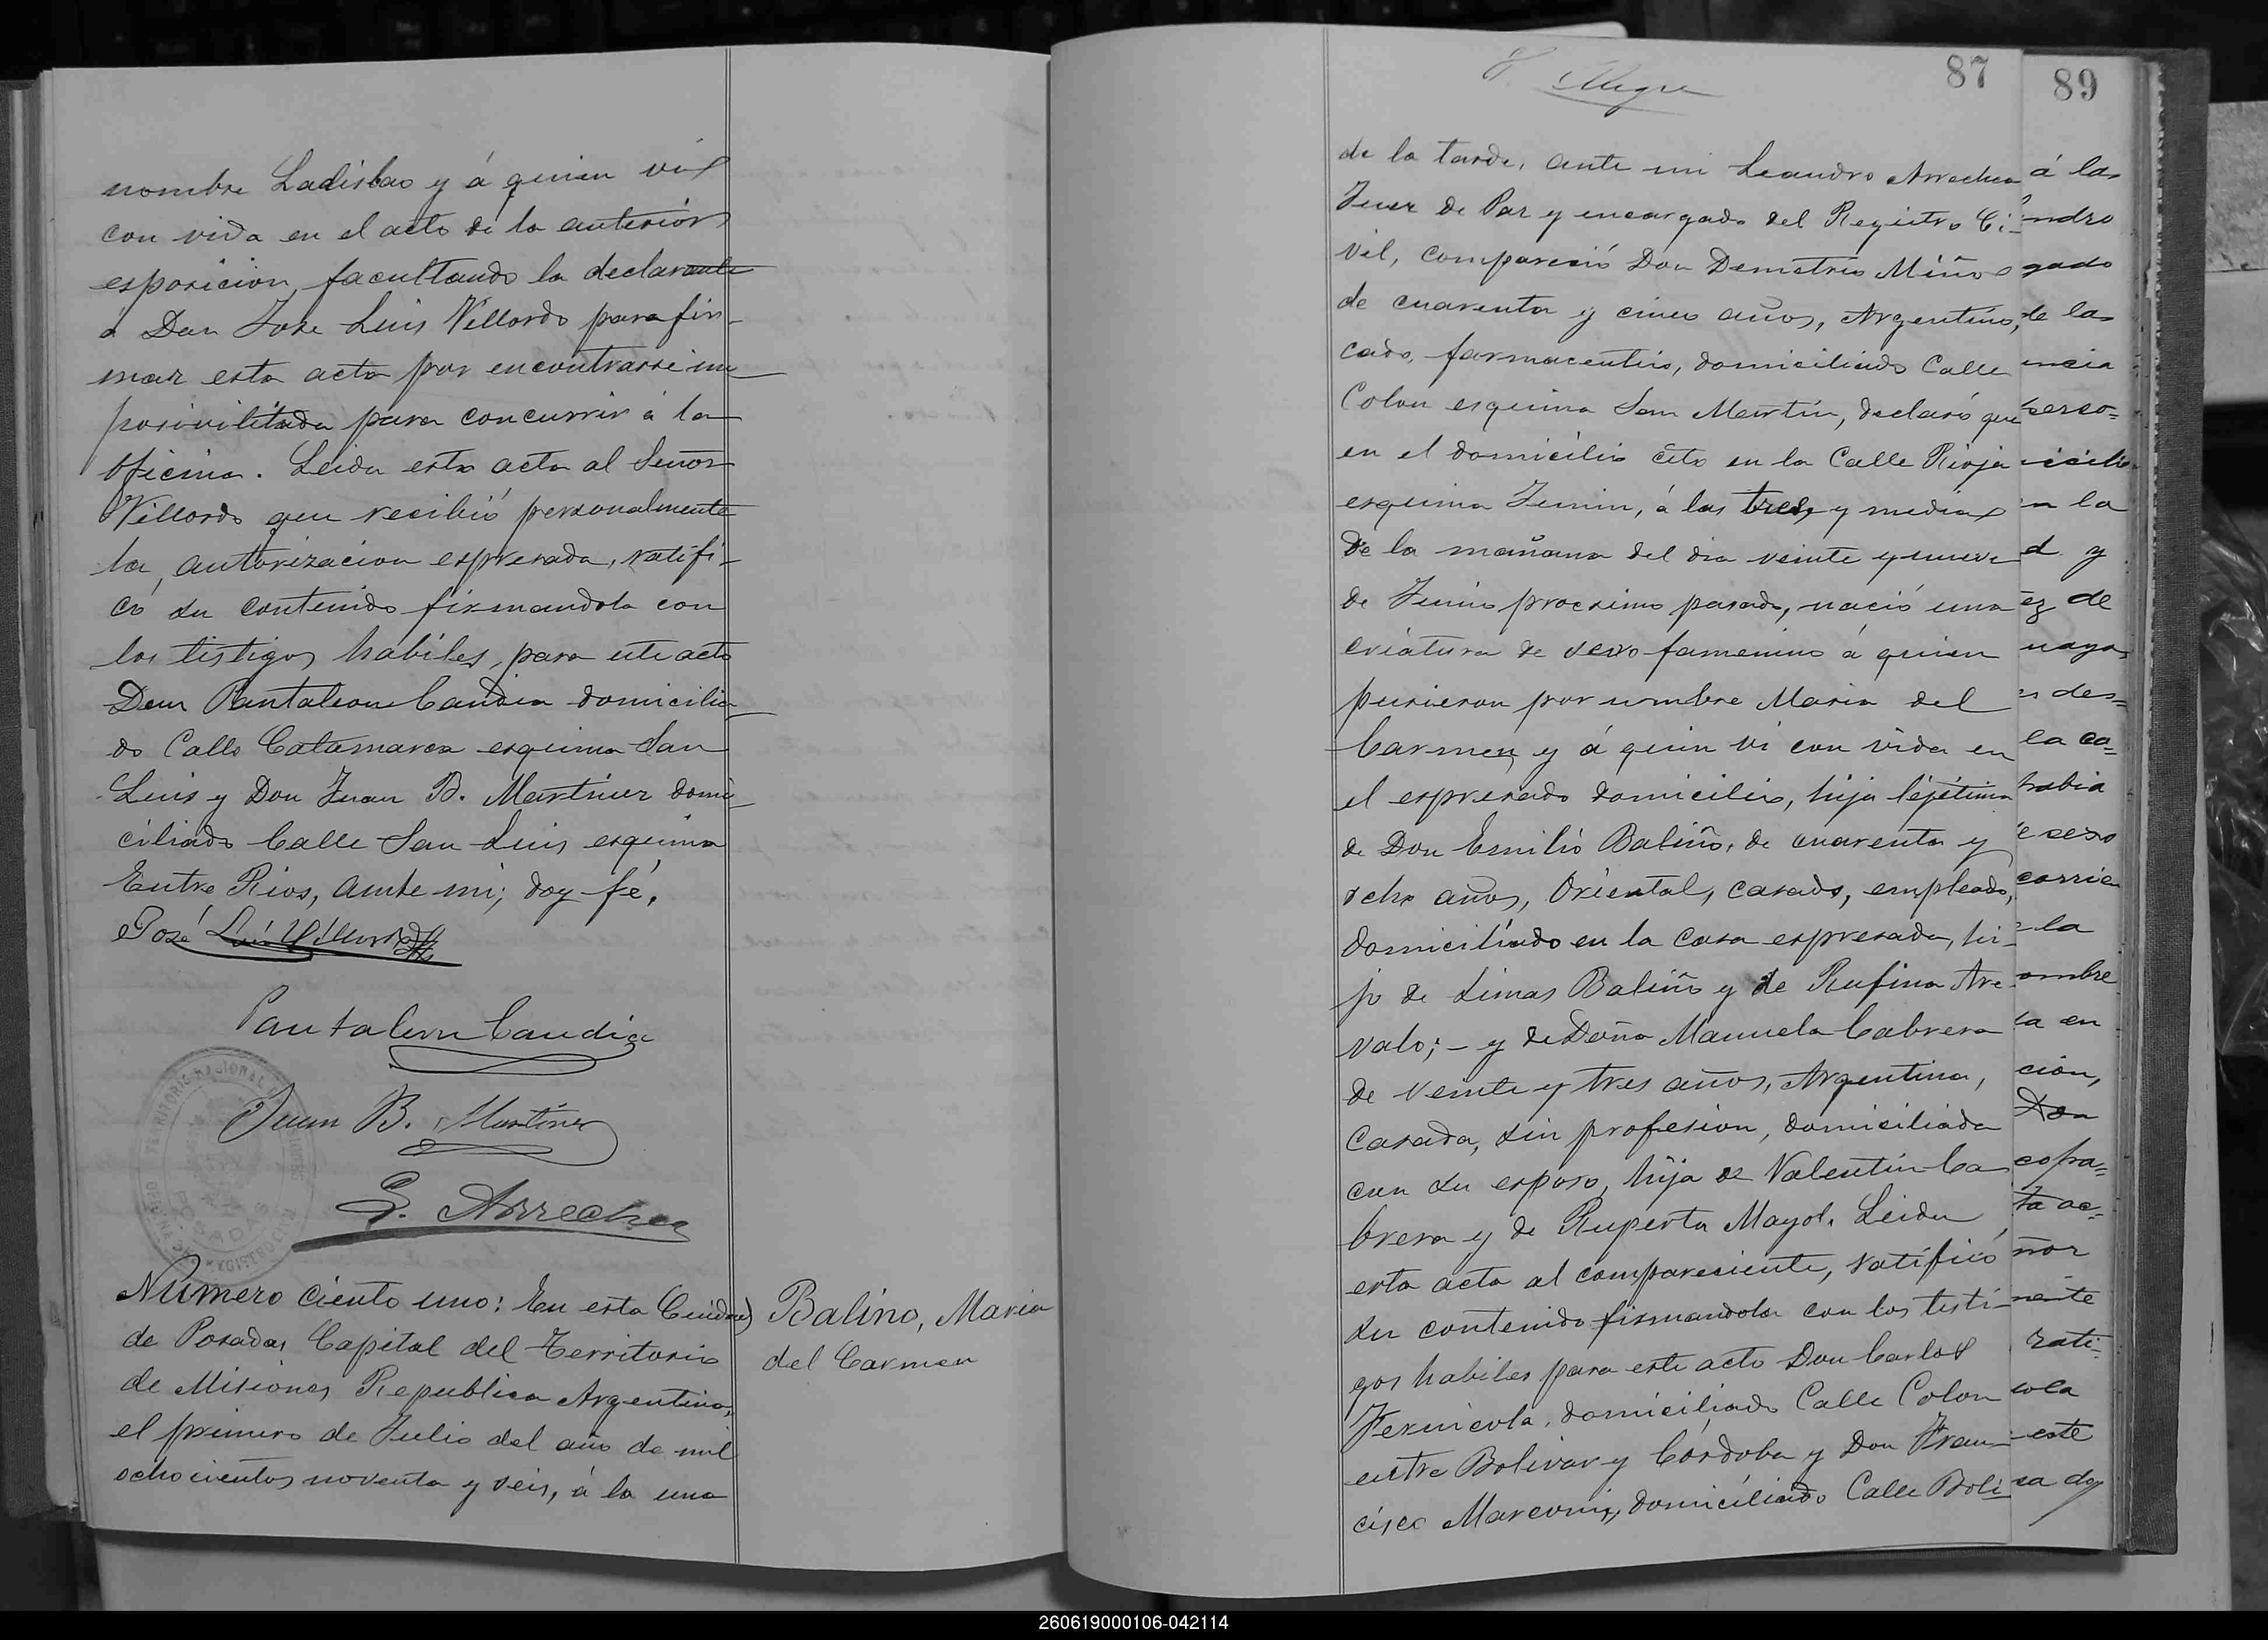 nombre Ladislao y á quien vi
con vida en el acto de la anterior
esposicion, facultando la declarante
a Don Jose Luis Villordo para fir-
mar esta acta por encontrarse im
posivilitada para concurrir á la
oficina. Leida esta acta al Señor
Villordo quen recibió personalmente
la autorizacion espresada, ratifi-
có su contenido firmandola con
los tistigos habiles, para este acto
Don Pantaleon Candia domicilia
do Calle Catamarca esquina San
Luis y Don Juan B. Martinez domi
ciliado Calle San Luis esquina
Entre Rios, ante mi; doy fé.
José Luis Villordo
Pantaleon Candia
Juan B. Martinez
L. Arrechea
TERRITORIO NACIONAL
POSADAS
Numero ciento uno: En esta Ciudad
de Posadas Capital del Territorio
de Misiones Republica Argentina,
el primero de Julio del año de mil
ochocientos noventa y seis, á la una
Balino, Maria
del Carmen
87
de la tarde, ante mi Leandro Arrechea
Juez de Paz y encargado del Registro Ci-
vil, compareció Don Demetrio Miño
de cuarenta y cinco años, Argentino,
cado, farmaceutio, domiciliado Calle
Colon esquina San Martin, declaró que
en el domicilio cito en la Calle Rioja
esquina Junin, á las tres, y media
de la mañana del dia veinte y nueve
de Junio procsimo pasado, nació una
criatura de sexo famenino á quien
pusieron por nombre Maria del
Carmen, y á quien vi con vida en
el espresado domicilio, hija lejétima
de Don Emilio Baliño, de cuarenta y
ocho años, Oriental, casado, empleado,
domiciliado en la casa espresada, hi-
jo de Limas Baliño y de Rufina Are
valo; - y de Doña Manuela Cabrera
de veinte y tres años, Argentina,
Casada, sin profesion, domiciliada
con su esposo, hija de Valentin Ca
brera y de Ruperta Mayol. Leida
esta acta al compareciente, ratificó
su contenido firmandola con los testi-
gos habiles para este acto Don Carlos
Fernicola, domiciliado Calle Colon
entre Bolivar y Córdoba y Don Fran-
cisco Marconi, domiciliado Calle Boli
89
á las
ndro
gado
de la
encia
perso=
icilio
n la
d y
ez de
uaya
des=
la ca=
habia
e sexo
corrien
la
ombre
ta en
cion,
Don
copa=
ta ac=
ñor
mente
rati=
cola
este
ra doy
260619000106-042114